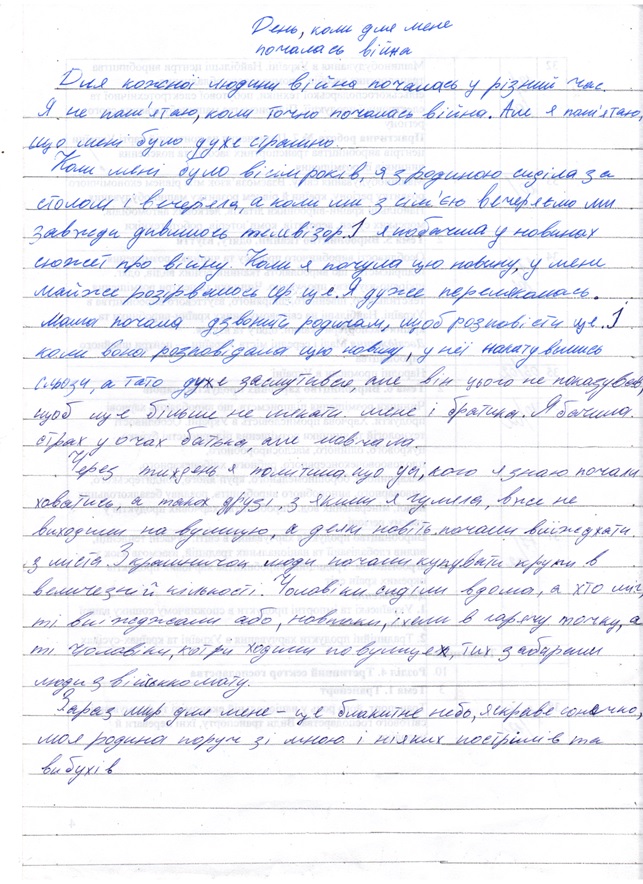 День, коли для мене
почалась війна
Для кожної людини війна почалась у різний час.
Я не пам'ятаю, коли точно почалась війна. Але я пам'ятаю,
що мені було дуже страшно.
Коли мені було вісім років, я з родиною сиділа за
столом і вечеряла, а коли ми з сім'єю вечеряємо ми
завжди дивимось телевізор. І я побачила у новинах
сюжет про війну. Коли я почула цю новину, у мене
майже розірвалось серце. Я дуже перелякалась.
Мама почала дзвонити родичам, щоб розповісти це. І
коли вона розповідала цю новину, у неї накатувались
сльози, а тато духе засмутився, але він цього не показував,
щоб ще більше не лякати мене і братика. Я бачила
страх у очах батька, але мовчала.
Через тиждень я помітила що усі, кого я знаю почали
ховатись, а також друзі, з якими я гуляла, вже не
виходили на вулицю, а деякі навіть почали виїжджати
з міста. З крамничок люди почали купувати крупи в
величезній кількості. Чоловіки сиділи вдома, а хто міг,
ті виїжджали або, навпаки, їхали в гарячу точку, а
ті чоловіки, котрі ходили по вулицех, тих забирали
люди з військкомату.
Зараз мир для мене - це блакитне небо, яскраве сонечко,
моя родина поруч зі мною і ніяких пострілів та
вибухів